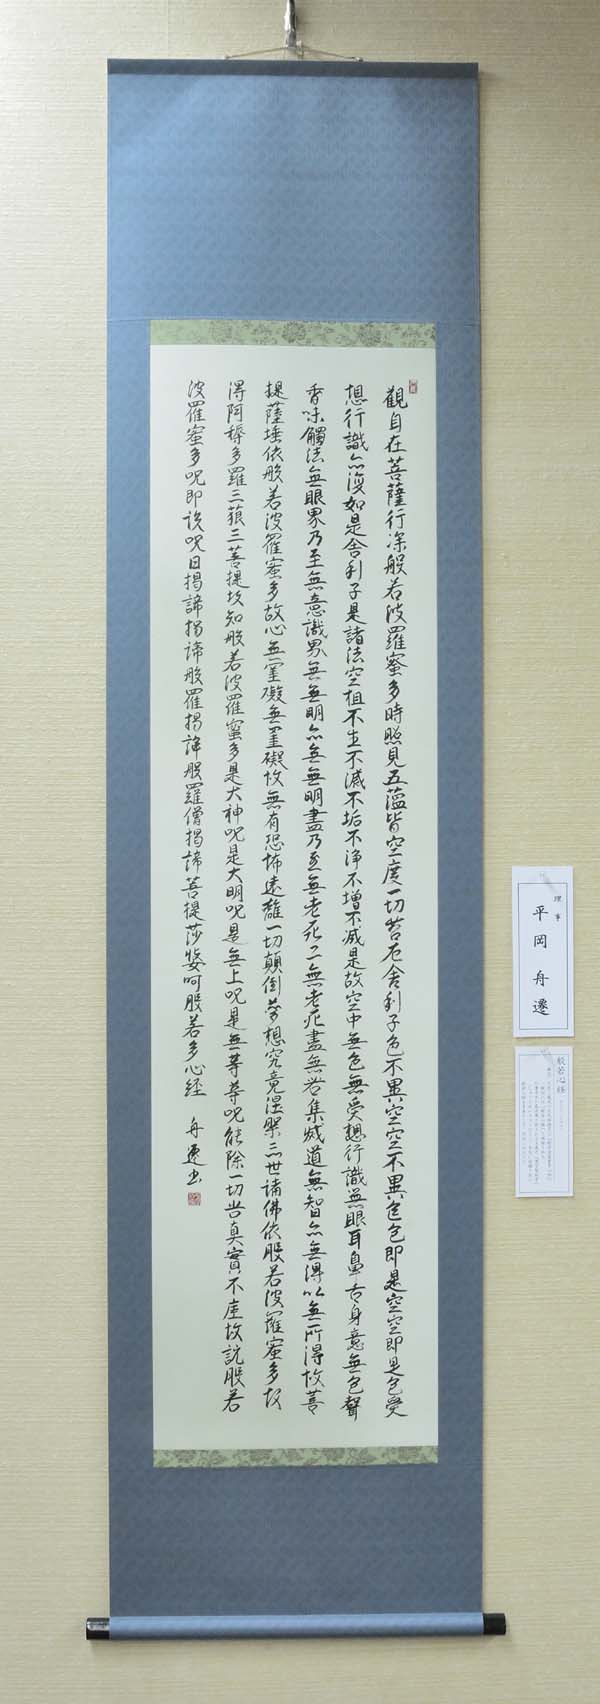 觀自在菩薩行深般若波羅蜜多時照見五蘊皆空度一切苦厄舍利子色不異空空不異色色即是空空即是色受
想行識亦復如是舍利子是諸法空相不生不滅不垢不淨不增不減是故空中無色無受想行識無眼耳鼻舌身意無色聲
香味觸法無眼界乃至無意識界無無明亦無無明盡乃至無老死亦無老死盡無苦集滅道無智亦無得以無所得故菩
提薩埵依般若波羅蜜多故心無罣礙無罣礙故無有恐怖遠離一切顛倒夢想究竟涅槃三世諸佛依般若波羅蜜多故
得阿耨多羅三藐三菩提故知般若波羅蜜多是大神呪是大明呪是無上呪是無等等呪能除一切苦真實不虛故說般若
波羅蜜多呪即說呪曰揭諦揭諦般羅揭諦般羅僧揭諦菩提莎婆呵般若多心経 舟遷書
理事
平岡舟遷
般若心経